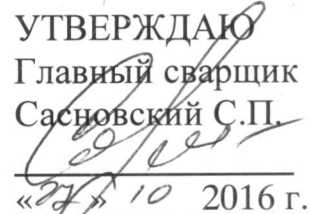 УТВЕРЖДАЮ
Главный сварщик
Сасновский С.П.
«27» 10 2016 г.